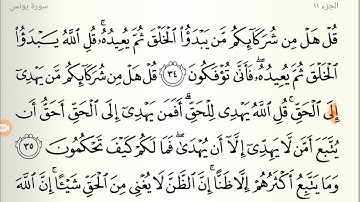 الجزء ١١ سورة يونس
قُلْ هَلْ مِن شُرَكَآئِكُم مَّن يَبْدَؤُا۟ ٱلْخَلْقَ ثُمَّ يُعِيدُهُۥ ۚ قُلِ ٱللَّهُ يَبْدَؤُا۟
ٱلْخَلْقَ ثُمَّ يُعِيدُهُۥ ۖ فَأَنَّىٰ تُؤْفَكُونَ ٣٤ قُلْ هَلْ مِن شُرَكَآئِكُم مَّن يَهْدِىٓ
إِلَى ٱلْحَقِّ ۚ قُلِ ٱللَّهُ يَهْدِى لِلْحَقِّ ۗ أَفَمَن يَهْدِىٓ إِلَى ٱلْحَقِّ أَحَقُّ أَن
يُتَّبَعَ أَمَّن لَّا يَهِدِّىٓ إِلَّآ أَن يُهْدَىٰ ۖ فَمَا لَكُمْ كَيْفَ تَحْكُمُونَ ٣٥
وَمَا يَتَّبِعُ أَكْثَرُهُمْ إِلَّا ظَنًّا ۚ إِنَّ ٱلظَّنَّ لَا يُغْنِى مِنَ ٱلْحَقِّ شَيْـًٔا ۚ إِنَّ ٱللَّهَ